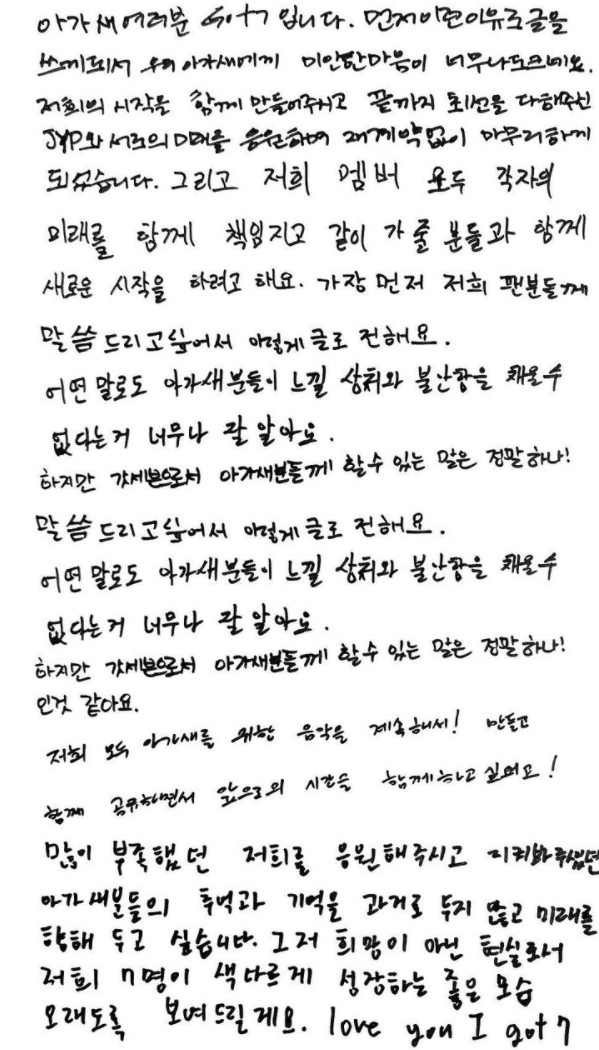 아가새 여러분 Got7 입니다. 먼저 이런 이유로 글을
쓰게 되서 우리 아가새에게 미안한 마음이 너무나도 크네요.
저희의 시작을 함께 만들어주시고 끝까지 최선을 다해주신
JYP와 서로의 미래를 응원하며 재계약없이 마무리하게
되었습니다. 그리고 저희 멤버 모두 각자의
미래를 함께 책임지고 같이 가 줄 분들과 함께
새로운 시작을 하려고 해요. 가장 먼저 저희 팬분들께
말씀드리고싶어서 이렇게 글로 전해요.
어떤 말로도 아가새분들이 느낄 상처와 불안함을 채울수
없다는거 너무나 잘 알아요.
하지만 갓세븐으로서 아가새분들께 할 수 있는 말은 정말 하나!
말씀드리고싶어서 이렇게 글로 전해요.
어떤 말로도 아가새분들이 느낄 상처와 불안함을 채울수
없다는거 너무나 잘 알아요.
하지만 갓세븐으로서 아가새분들께 할 수 있는 말은 정말 하나!
인것 같아요.
저희 모두 아가새를 위한 음악을 계속해서! 만들고
함께 공유하면서 앞으로의 시간을 함께하고 싶어요!
많이 부족했던 저희를 응원해주시고 지켜봐주셨던
아가새분들의 추억과 기억을 과거로 두지 않고 미래를
향해 두고 싶습니다. 그저 희망이 아닌 현실로서
저희 7명이 색다르게 성장하는 좋은 모습
오래도록 보여드릴게요. love you I got7